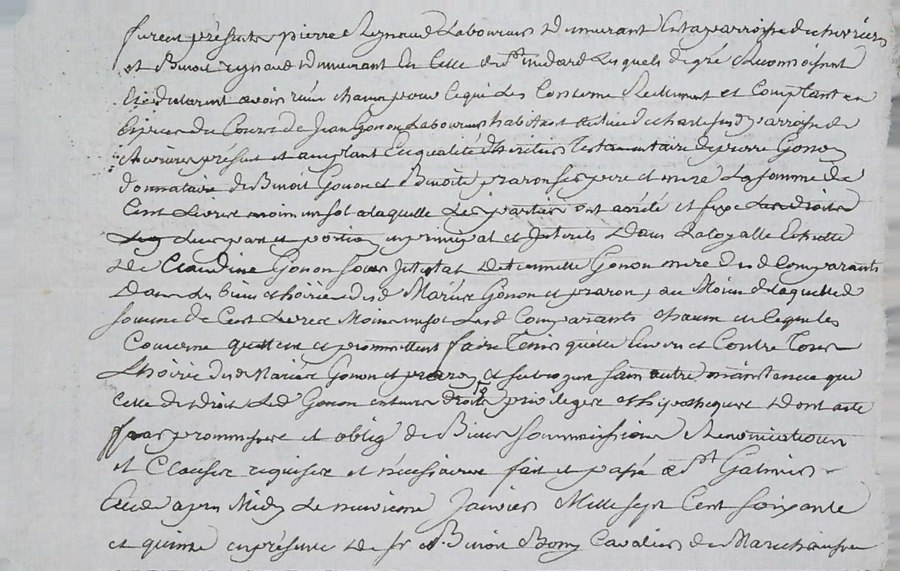 furent présents pierre Reynaud Laboureur demeurant En la parroisse de chivrieres
et Benoit reynaud demeurant En Celle de St medard Lesquels de gré
déclarent avoir reçu chacun pour Ce qui Les Concerne Reellement et Comptant en
Espèces du Cours de Jean Gonon Laboureur habitant du Lieu de parroisse de
chivrieres présent et acceptant En qualité d'heritier Testamentaire de pierre Gonon
donnataire de Benoit Gonon et Benoite praron Ses pere et mere La Somme de
Cent Livres moins un sol a laquelle Les parties ont arrété et fixé Les droits
Leur part et portion en principal et Interets dans La Loyalle Echutte
de Claudine Gonon Soeur de Gonon mere desd Comparants
dans Les biens et hoirie desd Mariés Gonon et praron, au Moien de laquelle d
Somme de Cent Livres Moins un sol Lesd Comparants chacun en Ce qui Les
Concerne quittent et promettent faire Tenir quitte Envers et Contre Tous
L'hoirie desd Mariés Gonon et praron et Subrogent Sans autre maintenue que
Celle de droit Led Gonon en Leurs droits privileges et hypotheques dont acte
fait promesses et oblig de Biens Soummissions Renonciations
et Clauses requises et nécessaires fait et passé a St Galmier
Etude apres Midy Le neuvieme Janvier Mille Sept Cent Soixante
et quinze en présence de Sr Benoit Cavalier de Marechaussée